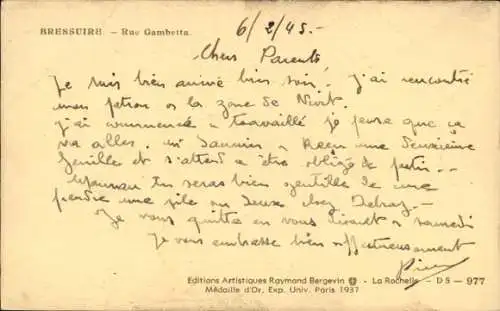 BRESSUIRE. — Rue Gambetta.
6/2/45 -
Chers Parents,
Je suis bien arrivé hier soir. J'ai rencontré
mon patron a la de Niort.
J'ai commencé a travaillé je pense que ça
va aller. Mr a Reçu une deuxième
feuille et s'attend a être obligé de partir..
Maman tu seras bien gentille de me
prendre une pile ou deux chez
Je vous quitte en vous disant a samedi
Je vous embrasse bien affectueusement
Editions Artistiques Raymond Bergevin - La Rochelle - D S - 977
Médaille d'Or, Exp. Univ. Paris 1937